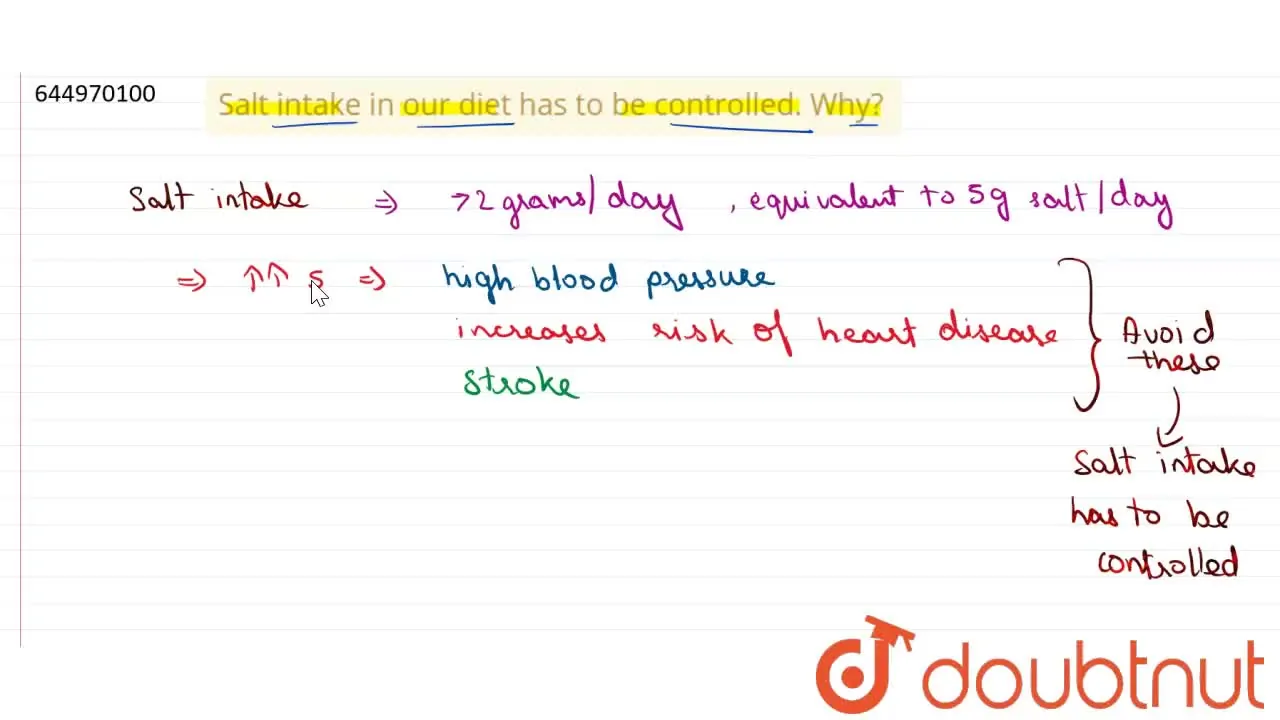 644970100
Salt intake in our diet has to be controlled. Why?
Salt intake ⇒ >2 grams/day , equivalent to 5g salt/day
⇒ ↑↑ s ⇒ high blood pressure
increases risk of heart disease
stroke
Avoid
these
Salt intake
has to be
controlled
doubtnut